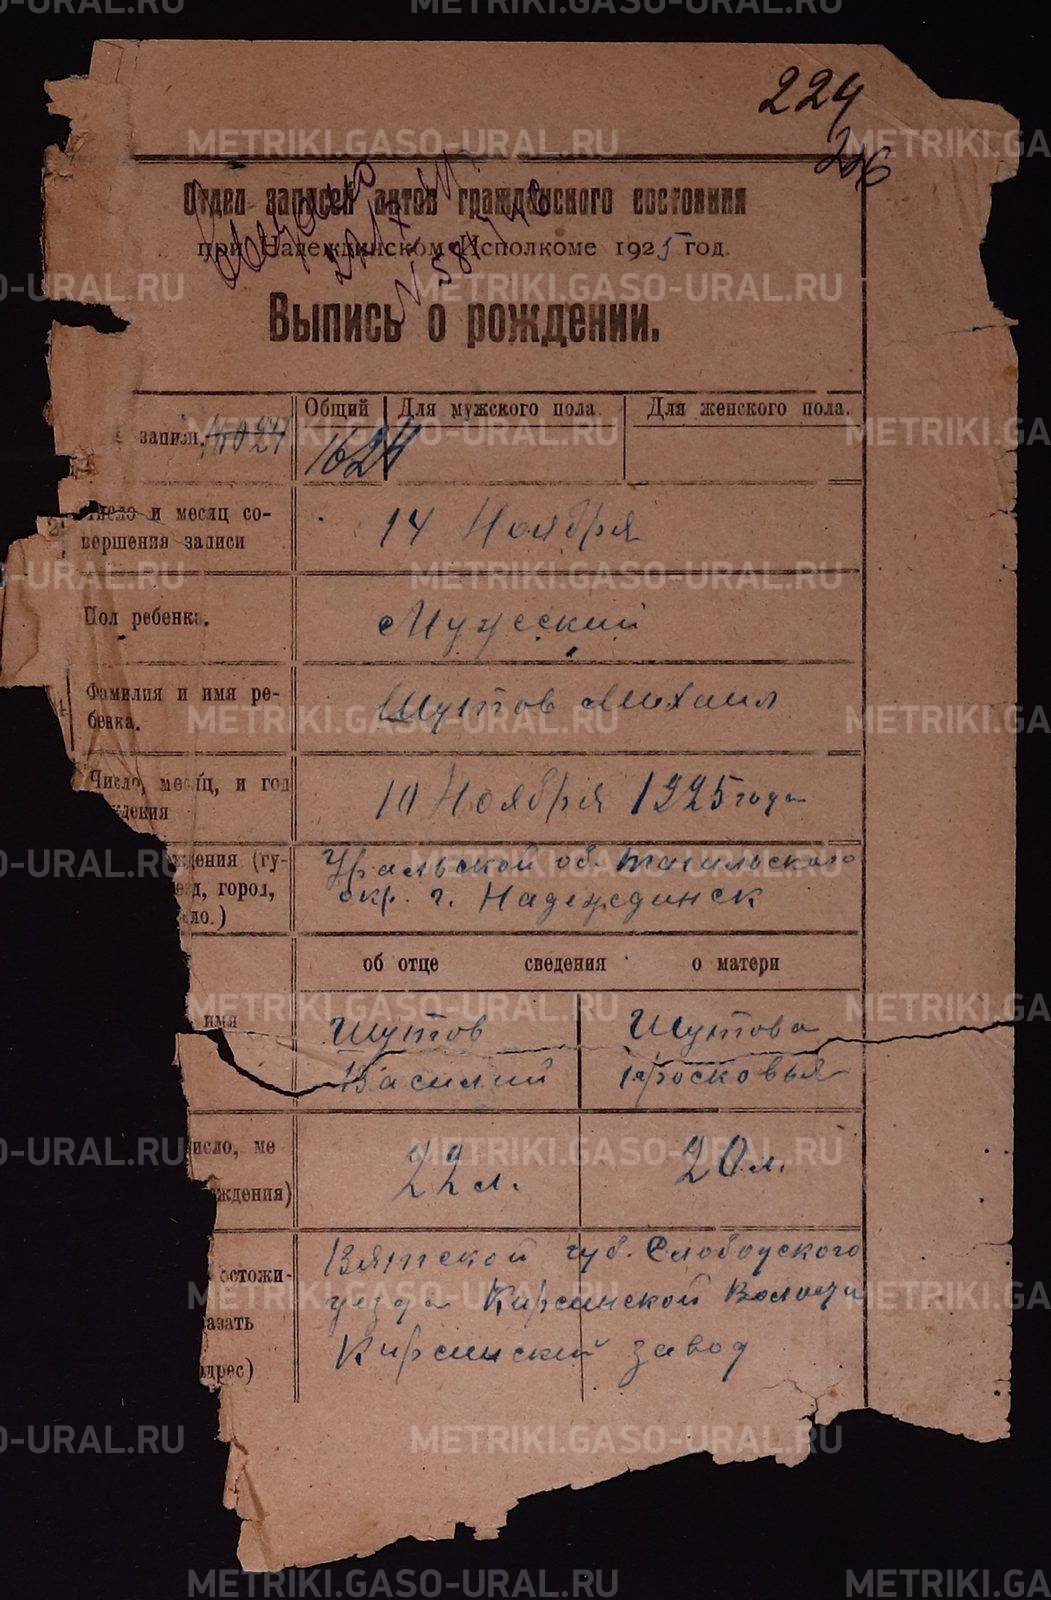 224
226
Отдел записей актов гражданского состояния
при Надеждинском Исполкоме 1925 год.
Выпись о рождении.
Общий Для мужского пола. Для женского пола.
записи. 1624
2 Число и месяц со-
вершения записи
14 Ноября
Пол ребенка.
Мужеский
Фамилия и имя ре-
бенка.
Шутов Михаил
Число, месяц, и год
ждения
10 Ноября 1925 года
ждения (гу-
езд, город,
ло.)
Уральской об. Тагильского
окр. г. Надеждинск
об отце сведения о матери
имя
Шутов
Василий
Шутова
Просковья
исло, ме
ждения)
22 л.
20 л.
остожи-
азать
адрес)
Вятской губ. Слободского
уезда Кирсинской Волости
Кирсинский завод
METRIKI.GASO-URAL.RU